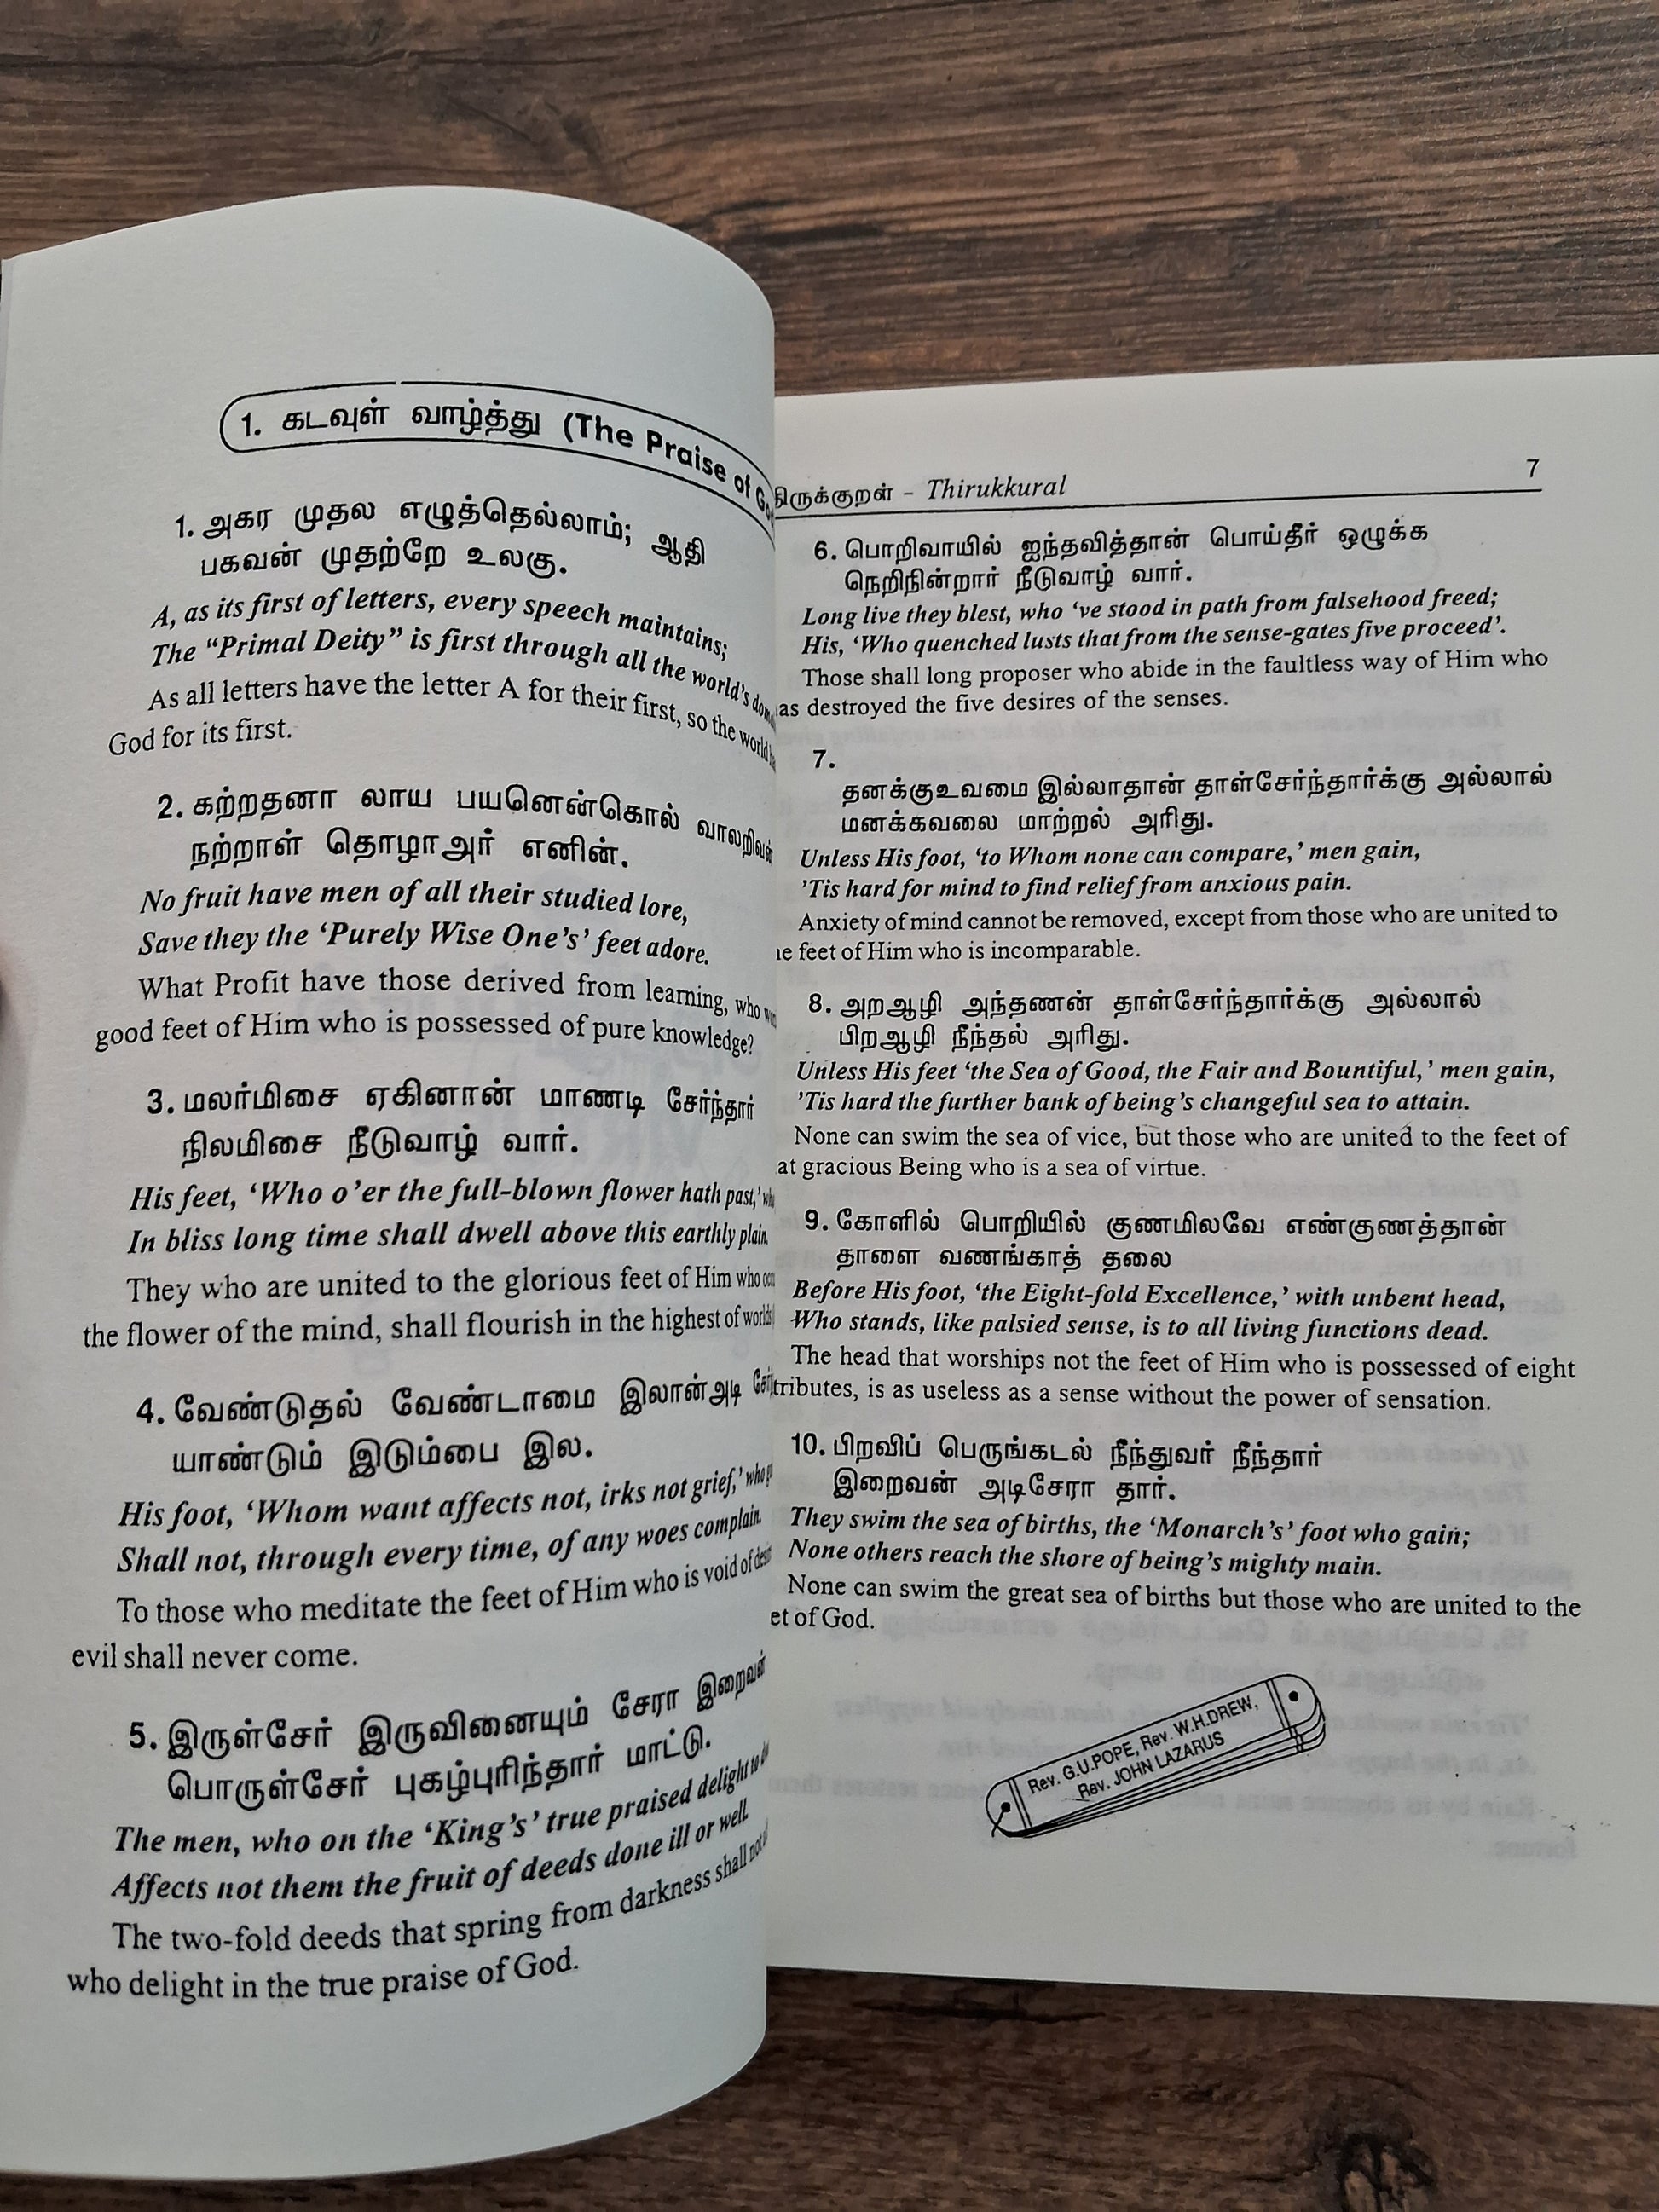 1. கடவுள் வாழ்த்து (The Praise of
1. அகர முதல எழுத்தெல்லாம்; ஆதி
பகவன் முதற்றே உலகு.
A, as its first of letters, every speech maintains;
The “Primal Deity” is first through all the world’s
As all letters have the letter A for their first, so the world
God for its first.
2. கற்றதனா லாய பயனென்கொல் வாலறிவன்
நற்றாள் தொழாஅர் எனின்.
No fruit have men of all their studied lore,
Save they the ‘Purely Wise One’s’ feet adore.
What Profit have those derived from learning, who
good feet of Him who is possessed of pure knowledge?
3. மலர்மிசை ஏகினான் மாணடி சேர்ந்தார்
நிலமிசை நீடுவாழ் வார்.
His feet, ‘Who o’er the full-blown flower hath past,’
In bliss long time shall dwell above this earthly plain.
They who are united to the glorious feet of Him who
the flower of the mind, shall flourish in the highest of worlds
4. வேண்டுதல் வேண்டாமை இலான்அடி
யாண்டும் இடும்பை இல.
His foot, ‘Whom want affects not, irks not grief,’ who
Shall not, through every time, of any woes complain.
To those who meditate the feet of Him who is void of
evil shall never come.
5. இருள்சேர் இருவினையும் சேரா இறைவன்
பொருள்சேர் புகழ்புரிந்தார் மாட்டு.
The men, who on the ‘King’s’ true praised delight to
Affects not them the fruit of deeds done ill or well.
The two-fold deeds that spring from darkness shall not
who delight in the true praise of God.
திருக்குறள் – Thirukkural 7
6. பொறிவாயில் ஐந்தவித்தான் பொய்தீர் ஒழுக்க
நெறிநின்றார் நீடுவாழ் வார்.
Long live they blest, who ‘ve stood in path from falsehood freed;
His, ‘Who quenched lusts that from the sense-gates five proceed’.
Those shall long proposer who abide in the faultless way of Him who
as destroyed the five desires of the senses.
7.
தனக்குஉவமை இல்லாதான் தாள்சேர்ந்தார்க்கு அல்லால்
மனக்கவலை மாற்றல் அரிது.
Unless His foot, ‘to Whom none can compare,’ men gain,
’Tis hard for mind to find relief from anxious pain.
Anxiety of mind cannot be removed, except from those who are united to
e feet of Him who is incomparable.
8. அறஆழி அந்தணன் தாள்சேர்ந்தார்க்கு அல்லால்
பிறஆழி நீந்தல் அரிது.
Unless His feet ‘the Sea of Good, the Fair and Bountiful,’ men gain,
’Tis hard the further bank of being’s changeful sea to attain.
None can swim the sea of vice, but those who are united to the feet of
at gracious Being who is a sea of virtue.
9. கோளில் பொறியில் குணமிலவே எண்குணத்தான்
தாளை வணங்காத் தலை
Before His foot, ‘the Eight-fold Excellence,’ with unbent head,
Who stands, like palsied sense, is to all living functions dead.
The head that worships not the feet of Him who is possessed of eight
tributes, is as useless as a sense without the power of sensation.
10. பிறவிப் பெருங்கடல் நீந்துவர் நீந்தார்
இறைவன் அடிசேரா தார்.
They swim the sea of births, the ‘Monarch’s’ foot who gain;
None others reach the shore of being’s mighty main.
None can swim the great sea of births but those who are united to the
et of God.
Rev. G.U.POPE, Rev. W.H.DREW,
Rev. JOHN LAZARUS